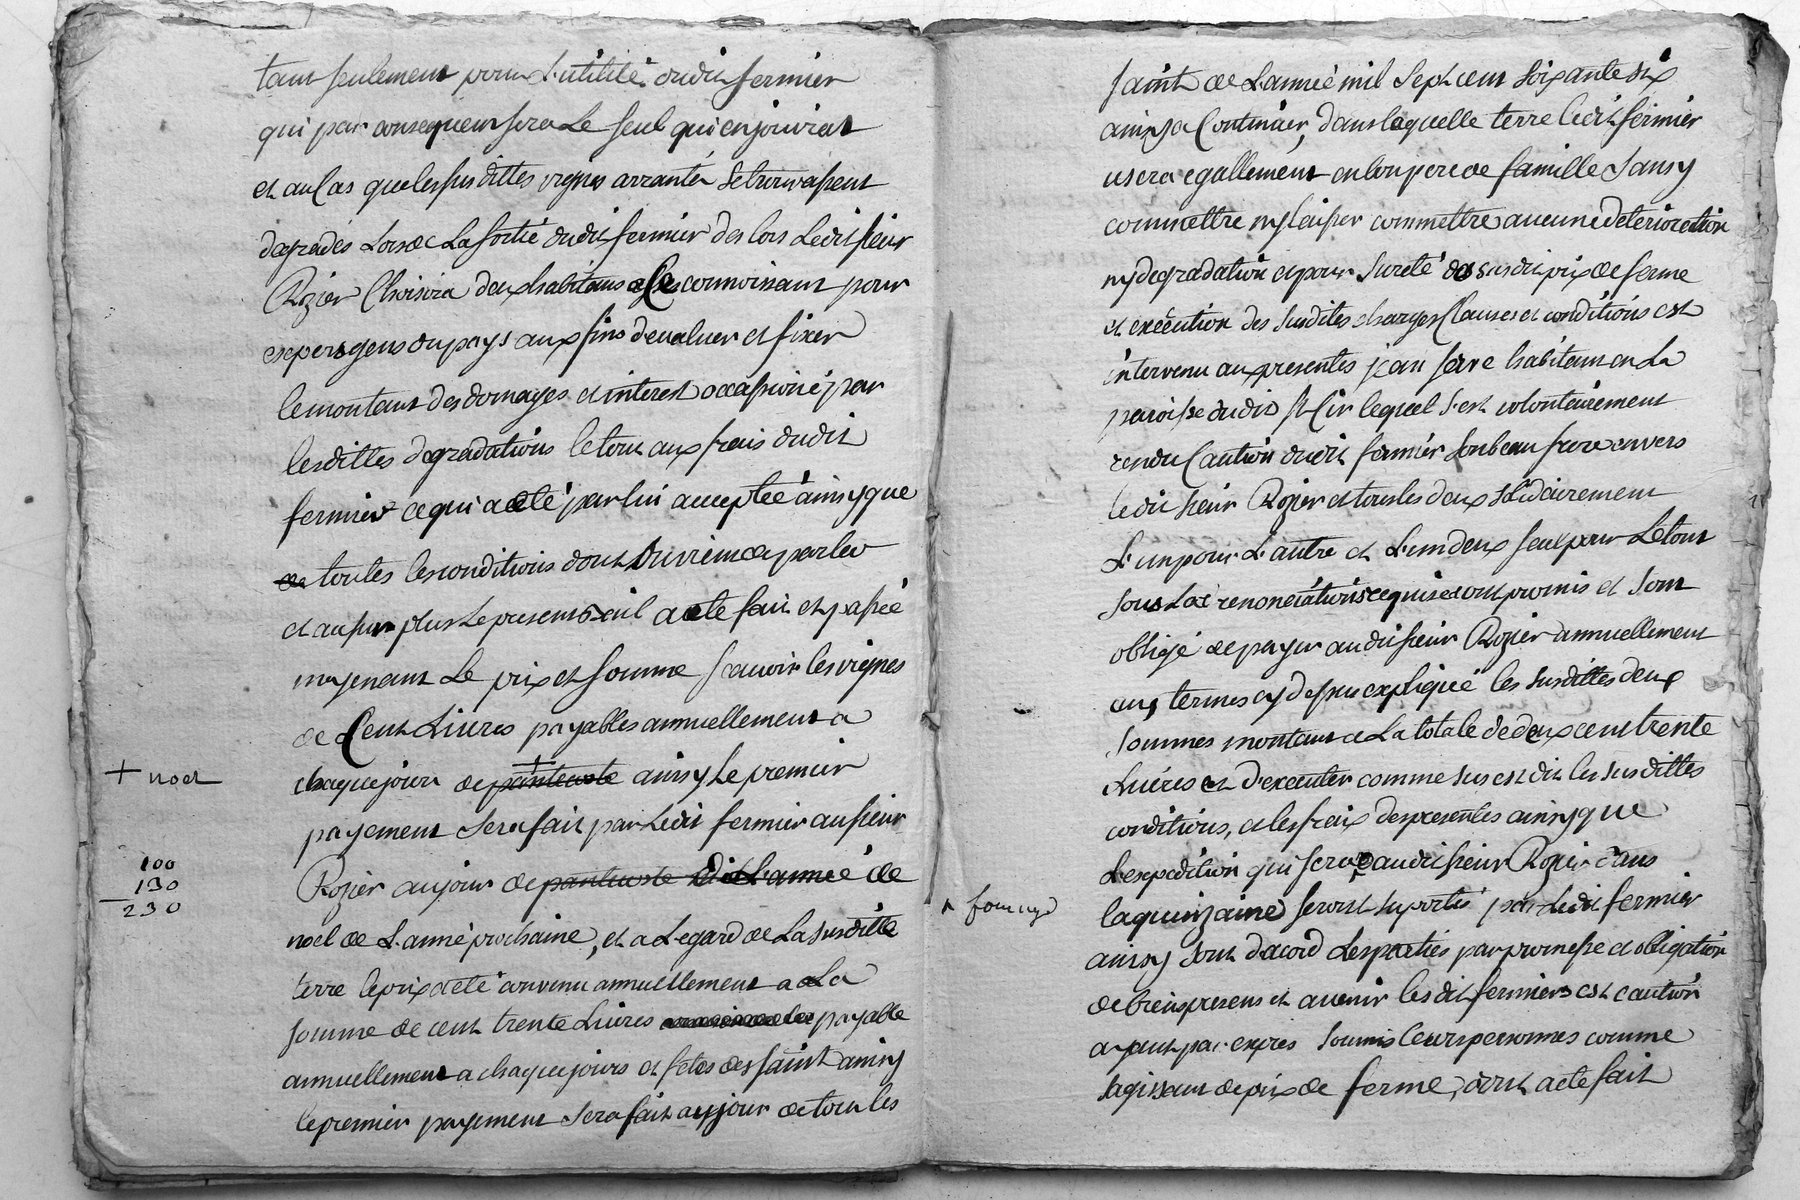 tant seulement pour L'utilité dudit fermier
qui par consequent sera Le seul qui en jouirat
et au Cas que les susdittes vignes arrantés se trouvassent
degradés Lors de La sortie dudit fermier des lors Ledit sieur
Rozier Choisira deux habitans connoissant pour
expers gens du pays aux fins d'evaluer et fixer
le montant des domages et interest occassioné par
lesdittes degradations le tout aux frais dudit
fermier ce qui a eté par lui acceptée ainsy que
de toutes les conditions dont on vient de parler
et au sur plus Le present bail a eté fait et passée
moyenant Le prix et somme scavoir les vignes
de Cent Livres payables annuellement a
chaque jour de pantecoste ainsy Le premier
+ noel
payement sera fait par Ledit fermier au sieur
100
130
230
Rozier au jour de pantecoste de L'année de
noel de L'anné prochaine, et a L'egard de La susditte
terre le prix a eté convenu annuellement a La
somme de cent trente Livres payable
annuellement a chaque jours et fetes des saint ainsy
le premier payement sera fait au jour de tous les
saint de L'année mil sept cent soixante six
ainsy a Continüer, dans laquelle terre ledit fermier
usera egallement en bon pere de famille sans y
commettre ny laisser commettre aucune deterioration
ny degradation et pour sureté du susdit prix de ferme
et exécution des susdites charges Clauses et conditions est
intervenu aux presentes jean serve habitant en La
paroisse dudit St Cir lequel s'est volontairement
rendu Caution dudit fermier son beau frere envers
ledit sieur Rozier et tous les deux solidairement
L'un pour L'autre et L'un deux seul pour Le tout
sous Les renonciations requises ont promis et sont
obligé de payer audit sieur Rozier annuellement
aux termes cy dessus expliqueé les susdittes deux
sommes montant a La totale de deux cent trente
Livres et d'executer comme sus est dit les susdittes
conditions, et les fraix des presentes ainsy que
L'expedition qui sera audit sieur Rozier dans
la quinzaine seront suportés par Ledit fermier
ainsy sont d'acord Les parties par promesse et obligation
de biens presens et avenir lesdit fermier et caution
ayant par expres soumis leurs personnes comme
s'agissant de prix de ferme, dont acte fait